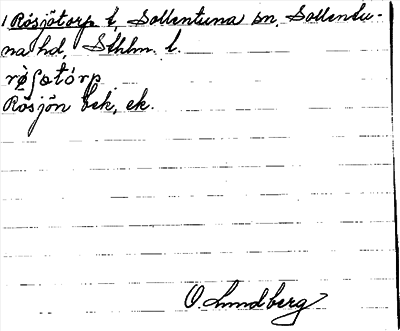 1 Rösjötorp t, Sollentuna sn, Sollentu-
na hd, Sthlm l.
rø̀ʃɷtórp
Rösjön bek, ek.
O Lundberg